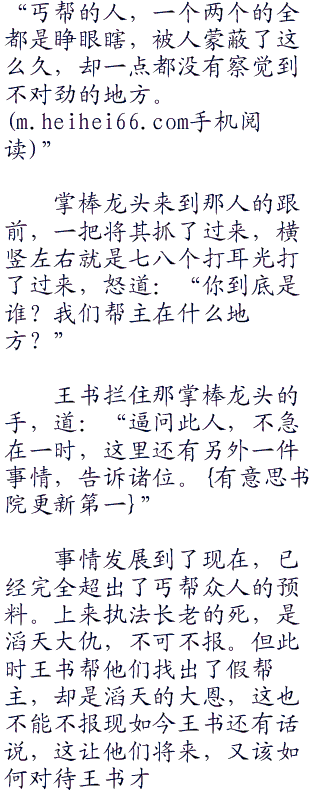 “丐帮的人，一个两个的全
都是睁眼瞎，被人蒙蔽了这
么久，却一点都没有察觉到
不对劲的地方。
(m.heihei66.com手机阅
读)”
掌棒龙头来到那人的跟
前，一把将其抓了过来，横
竖左右就是七八个打耳光打
了过来，怒道：“你到底是
谁？我们帮主在什么地
方？”
王书拦住那掌棒龙头的
手，道：“逼问此人，不急
在一时，这里还有另外一件
事情，告诉诸位。{有意思书
院更新第一}”
事情发展到了现在，已
经完全超出了丐帮众人的预
料。上来执法长老的死，是
滔天大仇，不可不报。但此
时王书帮他们找出了假帮
主，却是滔天的大恩，这也
不能不报现如今王书还有话
说，这让他们将来，又该如
何对待王书才